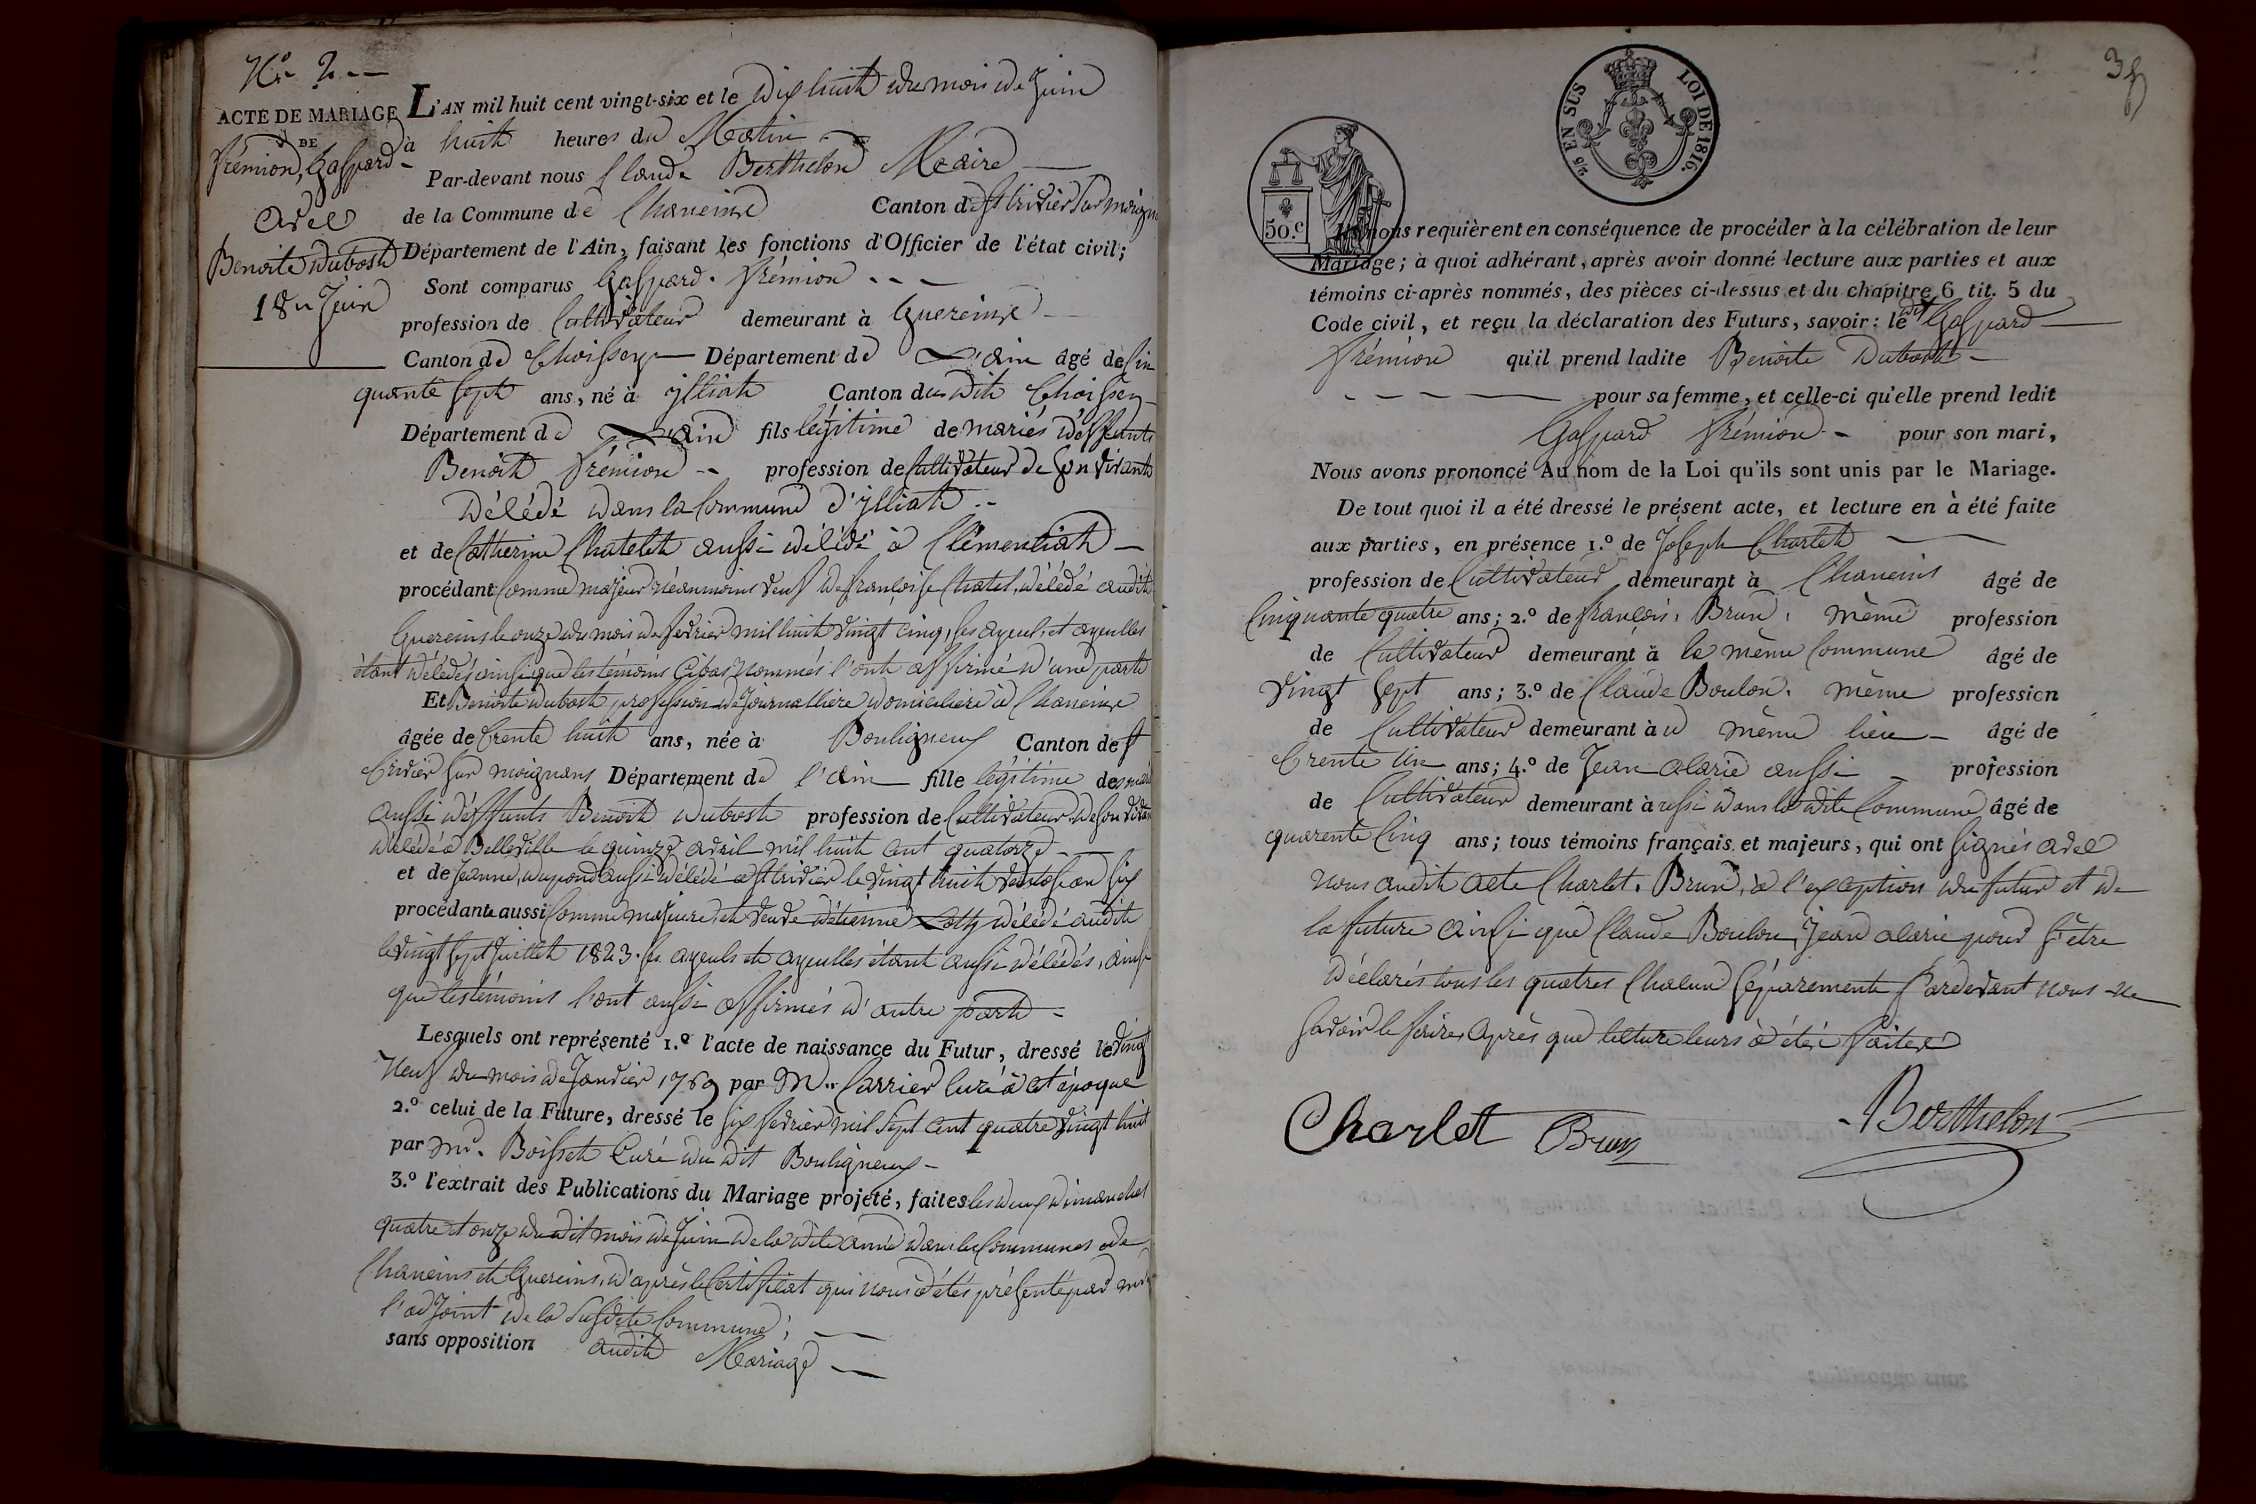 N.o 2
ACTE DE MARIAGE
DE
frémion, Gaspard
avec
Benoite Dubost
18 Juin
L'AN mil huit cent vingt-six et le dix huit du mois de Juin
à huit heures du Matin
Par-devant nous Claude Berthelon Maire
de la Commune de Chaneins Canton de St trivier sur moignans
Département de l'Ain, faisant les fonctions d'Officier de l'état civil;
Sont comparus Gaspard frémion
profession de Cultivateur demeurant à Guereins
Canton de Thoissey Département de L'ain âgé de Cin
quante sept ans, né à illiat Canton du dit Thoissey
Département de L'ain fils légitime de mariés deffunts
Benoit frémion profession de Cultivateur de son vivant
décédé dans la Commune d'illiat
et de Catherine Chatelet aussi décédé à Clémentiat
procédant Comme majeur néanmoins veuf de françoise Chatel, décédé audit
Guereins le onze du mois de fevrier mil huit vingt cinq, ses ayeul, et ayeulles
étant décédés ainsi que les témoins Cibas nommés l'ont affirmé d'une part
Et Benoite dubost profession de journalliere domiciliere à Chaneins
âgée de trente huit ans, née à Bouligneux Canton de St
trivier sur moignans Département de l'ain fille légitime de mariés
aussi deffunts Benoit dubost profession de Cultivateur de son vivant
décédé à Belleville le quinze avril mil huit cent quatorze
et de Jeanne dupond aussi décédé à St trivier le vingt huit ventose an six
procédante aussi Comme majeure, et veuve d'étienne décédé audit
le vingt sept Juillet 1823. ses ayeuls et ayeulles étant aussi décédés, ainsi
que les témoins l'ont aussi affirmés d'autre part
Lesquels ont représenté 1.o l'acte de naissance du Futur, dressé le vingt
Neuf du mois de Janvier 1769 par Mr. Carrier Curé à cet époque
2.o celui de la Future, dressé le six fevrier mil sept cent quatre vingt huit
par mr. Boisset Curé du dit Bouligneux
3.o l'extrait des Publications du Mariage projeté, faites les deux dimanches
quatre et onze du dit mois de Juin de la dite année dans les Communes de
Chaneins et Guereins, d'après le Certificat qui nous a étés présenté par mr
l'adjoint de la susdite Commune;
sans opposition audit Mariage
38
25 EN SUS LOI DE 1816.
50.c
nous requièrent en conséquence de procéder à la célébration de leur
Mariage; à quoi adhérant, après avoir donné lecture aux parties et aux
témoins ci-après nommés, des pièces ci-dessus et du chapitre 6 tit. 5 du
Code civil, et reçu la déclaration des Futurs, savoir: le dit Gaspard
frémion qu'il prend ladite Benoite Dubost
pour sa femme, et celle-ci qu'elle prend ledit
Gaspard frémion pour son mari,
Nous avons prononcé Au nom de la Loi qu'ils sont unis par le Mariage.
De tout quoi il a été dressé le présent acte, et lecture en à été faite
aux parties, en présence 1.o de Joseph Charlet
profession de Cultivateur demeurant à Chaneins âgé de
Cinquante quatre ans; 2.o de françois Brun même profession
de Cultivateur demeurant à la même Commune âgé de
vingt sept ans; 3.o de Claude Boulon même profession
de Cultivateur demeurant à u même lieu âgé de
trente un ans; 4.o de Jean alarie aussi profession
de Cultivateur demeurant à aussi dans la dite Commune âgé de
quarente cinq ans; tous témoins français et majeurs, qui ont signés avec
nous audit acte Charlet, Brun, à l'exception du futur et de
la future ainsi que Claude Boulon, Jean alarie pour s'être
déclarés tous les quatres Chacun séparements Pardevant nous ne
savoir le faire, après que lecture leurs à été faite
Charlet Brun Berthelon